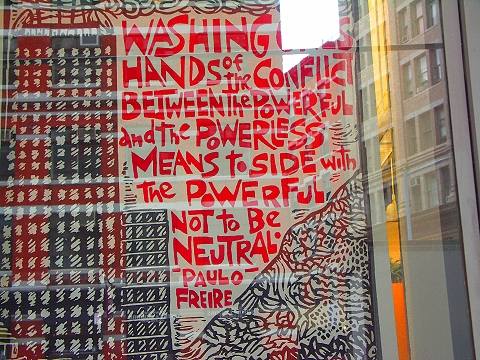 WASHING
HANDS of the CONFLICT
BETWEEN the POWERFUL
and the POWERLESS
MEANS to SIDE with
the POWERFUL
NOT to Be
NEUTRAL.
-PAULO-
FREIRE